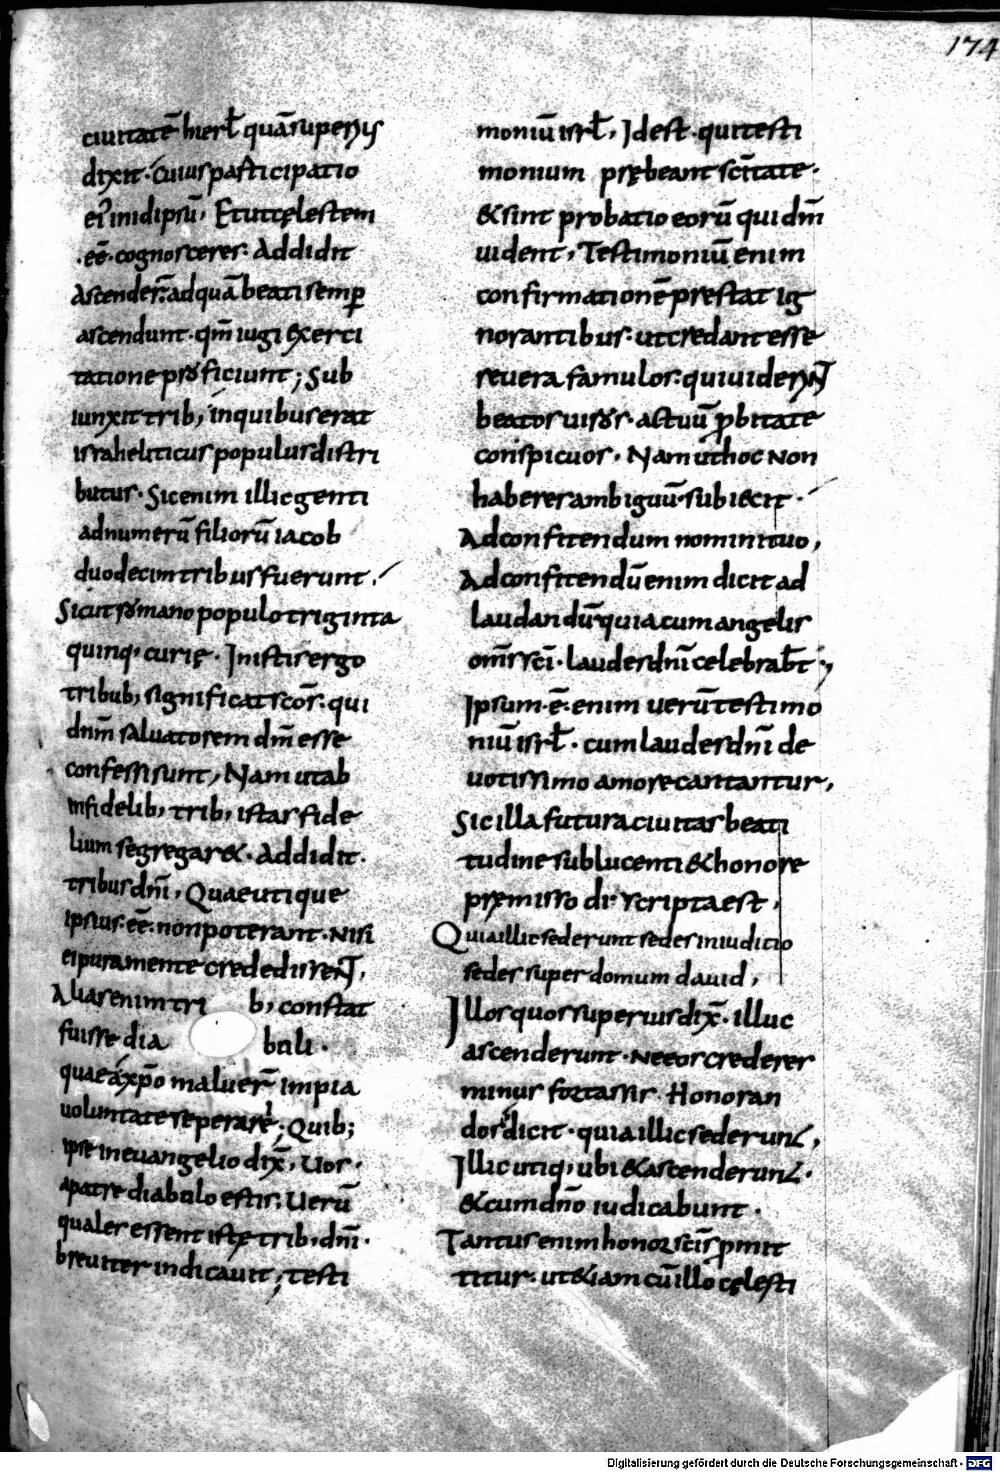 174
ciuitatē hierƚ quā superius
dixit · Cuius participatio
ei᷒ in idipsū, Et ut cęlestem
· eē · cognosceres · Addidit
Ascender̄ · ad quā beati semꝑ
ascendunt · qm̄ iugi exerci
tatione proficiunt; Sub
iunxit trib; in quibus erat
israheliticus populus distri
butus · Sic enim illic genti
ad numerū filiorū iacob
duodecim tribus fuerunt ·
Sicut romano populo triginta
quinq; curię · In istis ergo
tribub; significat scōs · qui
dnm̄ saluatorem dm̄ esse
confessi sunt, Nam ut ab
infidelib; trib; istas fide
lium segregar&. Addidit ·
tribus dnī, Quae utique
ipsius · eē · non poterant · Nisi
ei pura mente credidissent,
Alias enim tri b; constat
fuisse dia buli ·
quae a xp̄o maluer̄ impia
uoluntate seperari; Quib;
ipse in euangelio dix̄, Uos ·
a patre diabulo estis · Uerū
quales essent istę trib; dnī ·
breuiter indicauit; testi
moniū isrƚ, Idest · qui testi
monium prębeant scītate ·
& sint probatio eorū qui dm̄
uident, Testimoniū enim
confirmationē prestat ig
norantibus · ut credant esse
se uera famulos · qui uiderint
beatos uiros · actuū ꝓbitate
conspicuos · Nam ut hoc non
haberes ambiguū · subiecit ·
Ad confitendum nomini tuo,
Ad confitendū enim dicit ad
laudandū · quia cum angelis
om̄s scī · laudes dnī celebrab̄t;
Ipsum · ē · enim uerū testimo
niū isrƚ · cum laudes dnī de
uotissimo amore cantantur,
Sic illa futura ciuitas beati
tudine sublucenti & honore
pręmisso dī scripta est,
Quia illic sederunt sedes in iuditio
sedes super domum dauid,
Illos quos superius dix̄ · illuc
ascenderunt · Ne eos crederes
minus fortassis · Honoran
dos dicit · quia illic sederunt,
Illic utiq; ubi & ascenderunt ·
& cum dnō iudicabunt ·
Tantus enim honor scīs ꝓmit
titur · ut &iam cū illo cęlesti
Digitalisierung gefördert durch die Deutsche Forschungsgemeinschaft - DFG